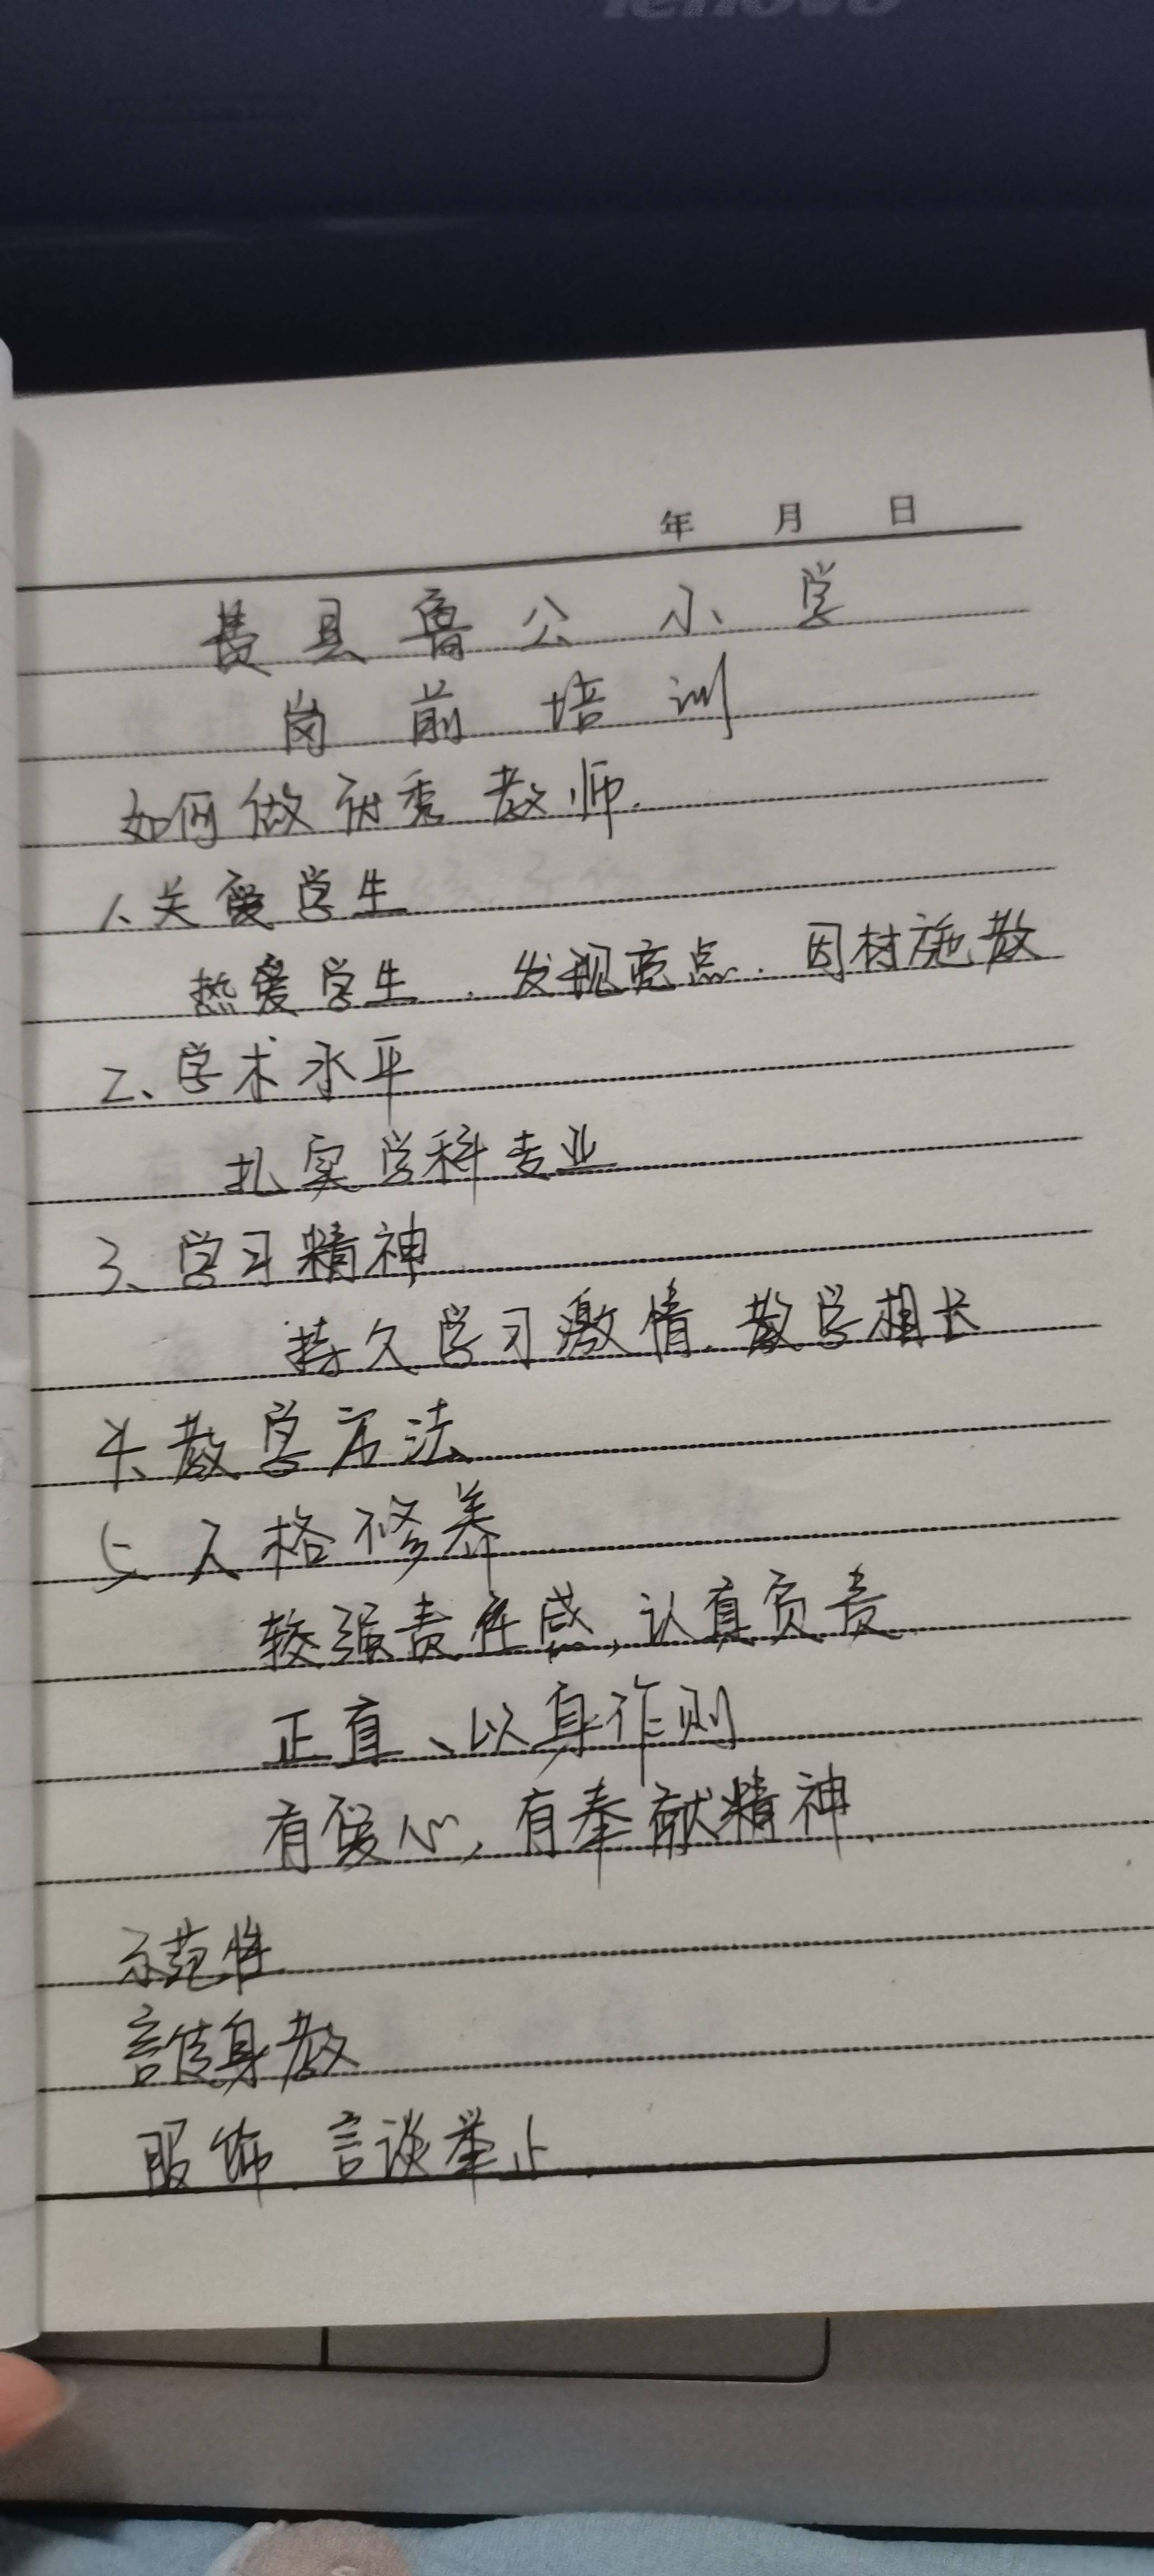 lenovo
年 月 日
费县鲁公小学
岗前培训
如何做优秀教师.
1、关爱学生
热爱学生、发现亮点、因材施教
2、学术水平
扎实学科专业
3、学习精神
持久学习激情、教学相长
4、教学方法
5、人格修养
较强责任感,认真负责
正直、以身作则
有爱心,有奉献精神.
示范性
言传身教
服饰、言谈举止.